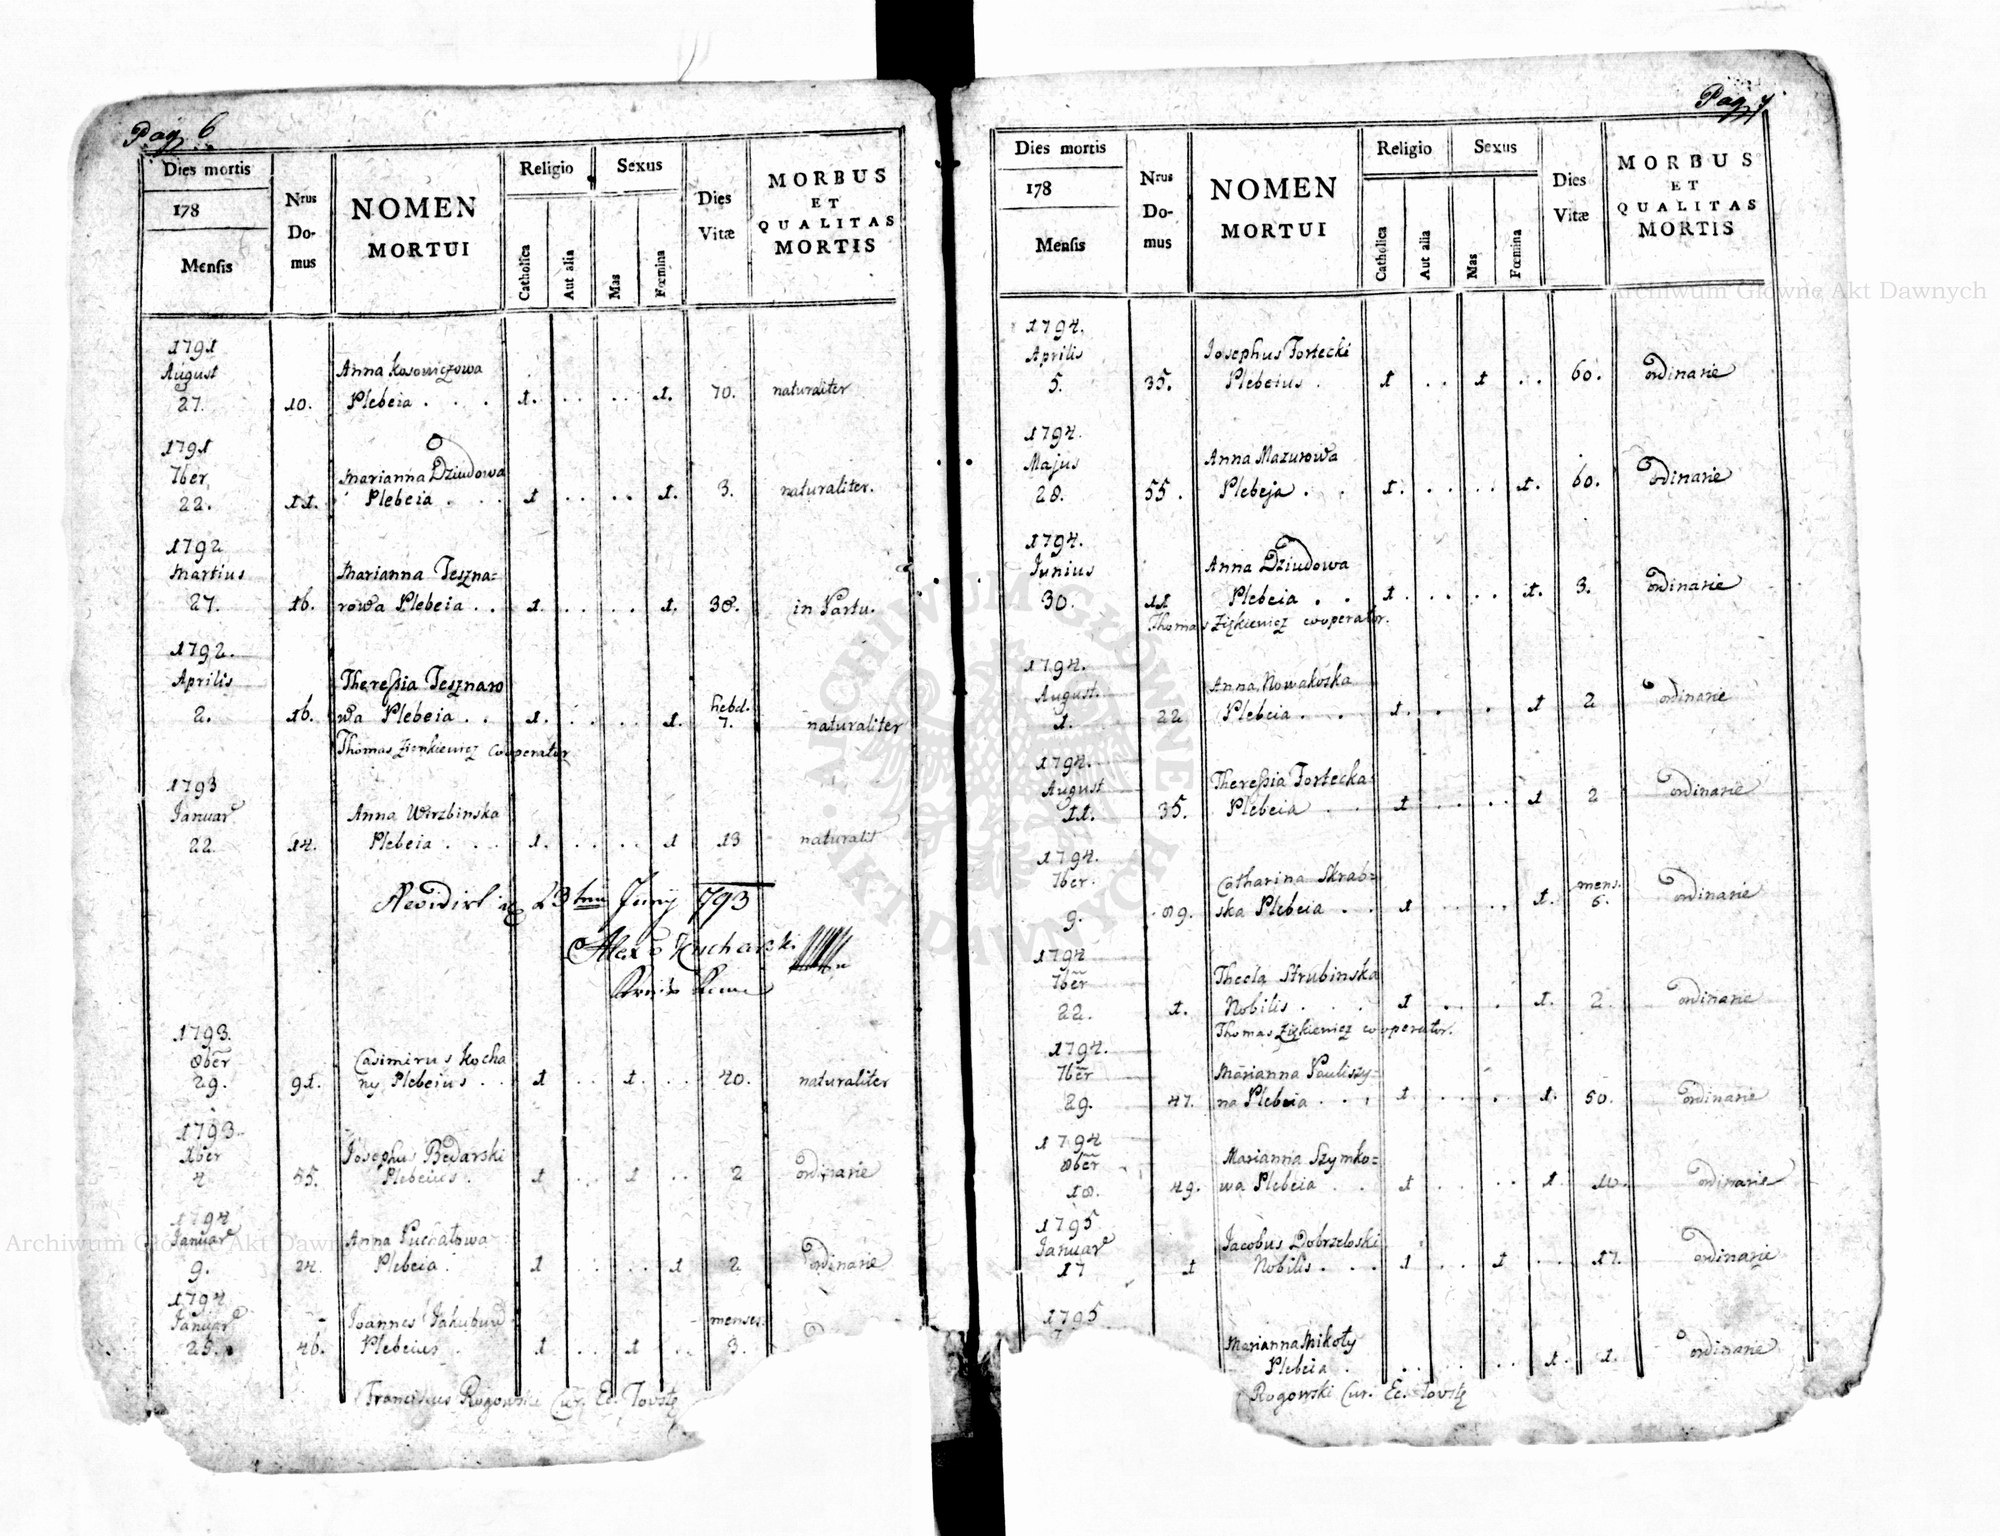 Pag 6
Dies mortis
178
Mensis
Nrus Domus
NOMEN MORTUI
Religio
Catholica
Aut alia
Sexus
Mas
Fœmina
Dies Vitæ
MORBUS ET QUALITAS MORTIS
1791
August Anna Kosowiczowa
27. 10. Plebeia . . . 1. . . . . 1. 70. naturaliter
1791
7ber Marianna Dziudowa
22. 11. Plebeia . . . 1 . . . . 1. 3. naturaliter.
1792
Martius Marianna Teszna=
27. 16. rowa Plebeia . . 1. . . . . 1. 38. in Partu.
1792.
Aprilis Theressia Tesznaro
2. 16. wa Plebeia . . 1. . . . . 1. hebd. 7. naturaliter
Thomas Zienkiewicz cooperator
1793
Januar Anna Wirzbinska
22. 14. Plebeia . . . 1. . . . . 1 13 naturalit
23 Junij 793
Alex Kucharski
1793.
8ber Casimirus Kocha
29. 91. ny Plebeius . . 1 . . 1. . . 40. naturaliter
1793.
Xber Josephus Bedarski
4 55. Plebeius . 1 . . 1 . . 2 ordinarie
1794
Januar Anna Puchatowa
9. 24. Plebeia . 1 . . . . 1 2 ordinarie
1794
Januar Joannes Jakubow menses.
25. 46. Plebeius . 1 . . 1 . . 3.
Franciscus Rogowski Cur. Ec. Tovstę
Pag 7
Dies mortis
178
Mensis
Nrus Domus
NOMEN MORTUI
Religio
Catholica
Aut alia
Sexus
Mas
Fœmina
Dies Vitæ
MORBUS ET QUALITAS MORTIS
1794.
Aprilis Josephus Tortecki
5. 35. Plebeius . 1 . . 1 . . 60. ordinarie
1794.
Majus Anna Mazurowa
28. 55. Plebeja . . 1. . . . . 1. 60. ordinarie
1794.
Junius Anna Dziudowa
30. 11 Plebeia . . 1 . . . . 1. 3. ordinarie
Thomas Ziękiewicz cooperator.
1794.
August. Anna Nowakoska
1. 22 Plebeia . . 1. . . . 1 2 ordinarie
1794.
August Theressia Tortecka
11. 35. Plebeia . . 1 . . . . 1 2 ordinarie
1794.
7ber. Catharina Skrab= mens.
9. 89. ska Plebeia . . 1 . . . . 1. 6. ordinarie
1794
7ber Thecla Strubinska
22. 1. Nobilis . . . 1 . . . . 1. 2. ordinarie
Thomas Ziękiewicz cooperator.
1794.
7ber Marianna Pauliszy=
29. 47. na Plebeia . . . 1. . . . . 1. 50. ordinarie
1794
8ber Marianna Szymko=
18. 49. wa Plebeia . . 1 . . . . 1. 10. ordinarie
1795
Januar Jacobus Dobrzeloski
17 1 Nobilis . . . 1 . . 1 . . . 17. ordinarie
1795
Marianna Mikoty
Plebeia . . . . . . 1. 1. ordinarie
Rogowski Cur. Ec. Tovstę
Archiwum Główne Akt Dawnych
Archiwum Główne Akt Dawnych
ARCHIWUM GŁÓWNE AKT DAWNYCH